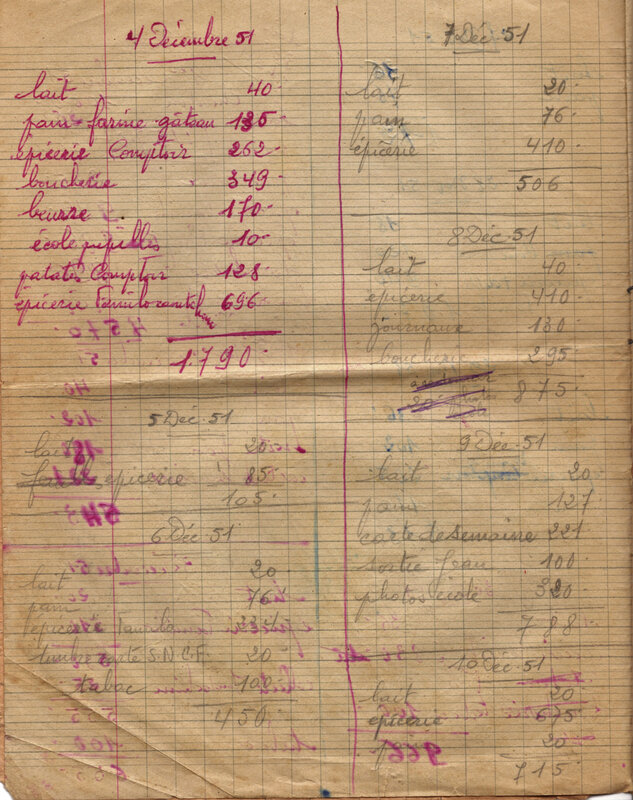 4 Décembre 51
lait 40
pain farine gâteau 135
épicerie Comptoir 262
boucherie 349
beurre 170
école pupilles 10
patates Comptoir 128
épicerie 696
1.790
5 Déc. 51
lait 20
épicerie 85
105
6 Déc 51
lait 20
pain 76
épicerie
timbre carte S.N.C.F. 20
tabac 100
450
7 Déc 51
lait 20
pain 76
épicerie 410
506
8 Déc 51
lait 40
épicerie 410
journaux 130
boucherie 295
875
9 Déc 51
lait 20
pain 127
carte de semaine 221
sortie Jean 100
photos école 320
788
10 Déc 51
lait 20
épicerie 675
20
715